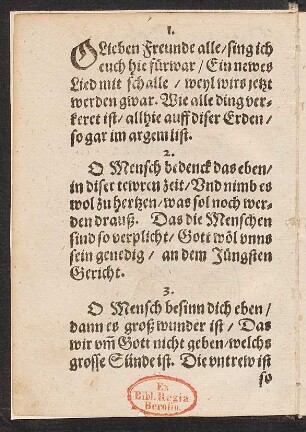 1.
O Lieben Freunde alle/sing ich
euch hie fürwar/ Ein newes
Lied mit schalle/weyl wirs jetzt
werden gwar. Wie alle ding ver-
keret ist/allhie auff diser Erden/
so gar im argem list.
2.
O Mensch bedenck das eben/
in diser tewren zeit/Und nimb es
wol zu hertzen/was sol noch wer-
den drauß. Das die Menschen
sind so verplicht/Gott wöl vnns
sein genedig/an dem Jüngsten
Gericht.
3.
O Mensch besinn dich eben/
dann es groß wunder ist/ Das
wir vm̃ Gott nicht geben/welchs
grosse Sünde ist. Die vntrew ist
so
Ex
Bibl. Regia
Berolin.